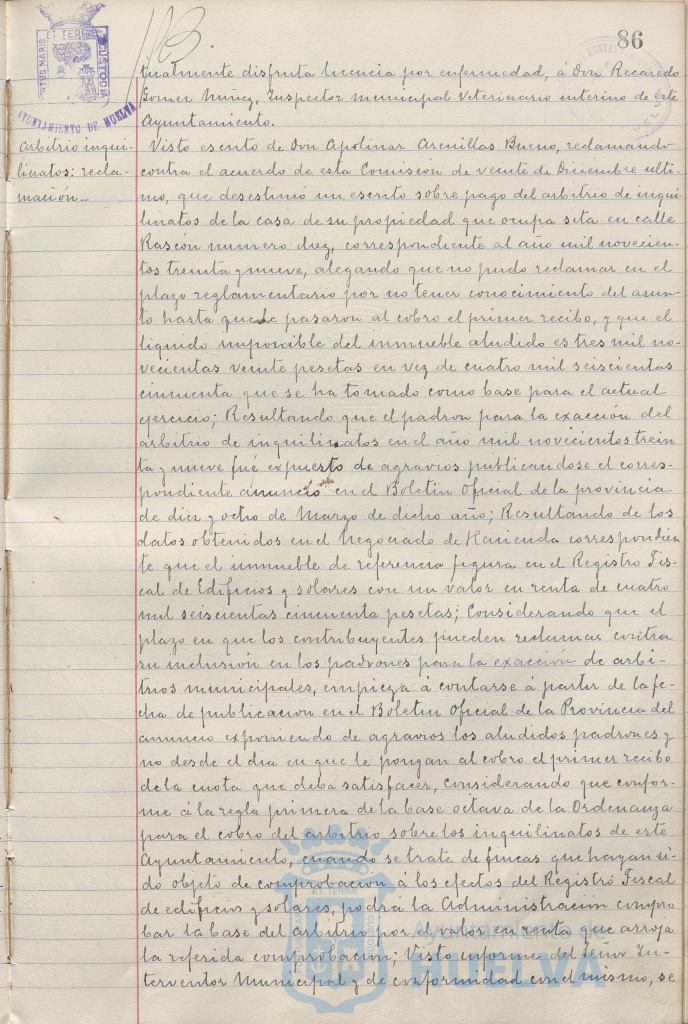 86
PORTUS MARIS ET TERRAE CUSTODIA
AYUNTAMIENTO DE HUELVA
tualmente disfruta licencia por enfermedad, á Don Recaredo
Gomez Nuñez, Inspector municipal Veterinario interino de este
Ayuntamiento.
arbitrio inqui-
linatos: recla-
mación.-
Visto escrito de Don Apolinar Arenillas Bueno, reclamando
contra el acuerdo de esta Comisión de veinte de Diciembre ulti-
mo, que desestimó un escrito sobre pago del arbitrio de inqui-
linatos de la casa de su propiedad que ocupa sita en calle
Rascón numero diez, correspondiente al año mil novecien-
tos treinta y nueve, alegando que no pudo reclamar en el
plazo reglamentario por no tener conocimiento del asun-
to hasta que le pasaron al cobro el primer recibo, y que el
liquido imponible del inmueble aludido es tres mil no-
vecientas veinte pesetas en vez de cuatro mil seiscientas
cincuenta que se ha tomado como base para el actual
ejercicio; Resultando que el padron para la exacción del
arbitrio de inquilinatos en el año mil novecientos trein
ta y nueve fué expuesto de agravios publicandose el corres-
pondiente anuncio en el Boletin Oficial de la provincia
de diez y ocho de Marzo de dicho año; Resultando de los
datos obtenidos en el Negociado de Hacienda correspondien
te que el inmueble de referencia figura en el Registro Fis-
cal de Edificios y solares con un valor en renta de cuatro
mil seiscientas cincuenta pesetas; Considerando que el
plazo en que los contribuyentes pueden reclamar contra
su inclusión en los padrones para la exacción de arbi-
trios municipales, empieza á contarse á partir de la fe-
cha de publicacion en el Boletin Oficial de la Provincia del
anuncio exponiendo de agravios los aludidos padrones y
no desde el dia en que le pongan al cobro el primer recibo
de la cuota que deba satisfacer, considerando que confor-
me á la regla primera de la base octava de la Ordenanza
para el cobro del arbitrio sobre los inquilinatos de este
Ayuntamiento, cuando se trate de fincas que hayan si-
do objeto de comprobacion á los efectos del Registro Fiscal
de edificios y solares, podrá la Administracion compro
bar la base del arbitrio por el valor en renta que arroja
la referida comprobacion; Visto informe del Señor In-
terventor Municipal y de conformidad con el mismo, se
Ayuntamiento de
HUELVA